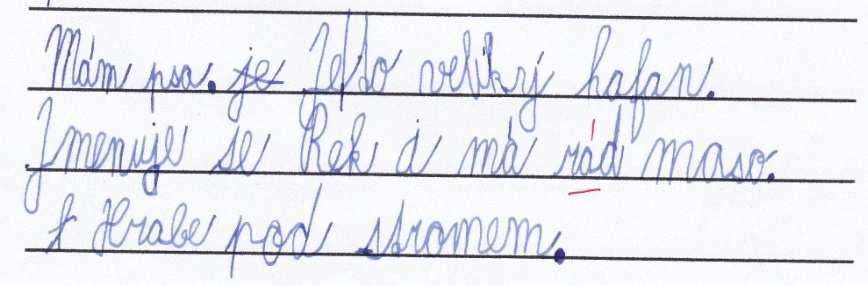 Mám psa. je Je to veliký hafan.
Jmenuje se Rek a má rád maso.
Hrabe pod stromem.